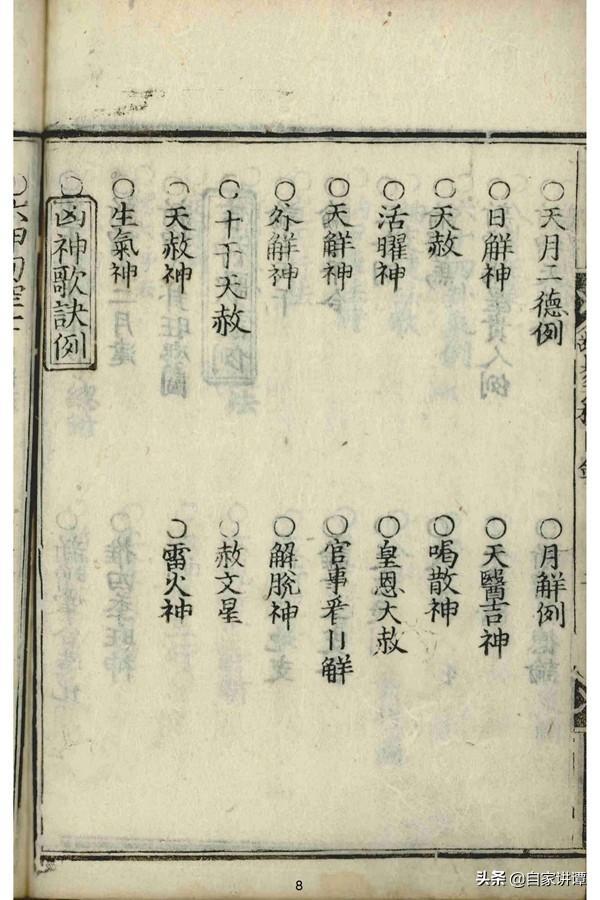 ○天月二德例
○月解例
○日解神
○天醫吉神
○天赦
○喝散神
○活曜神
○皇恩大赦
○天解神
○外解神
○解脫神
○十干天赦
○赦文星
○天赦神
○雷火神
○生氣神
○凶神歌訣例
8
头条 @自家讲谭